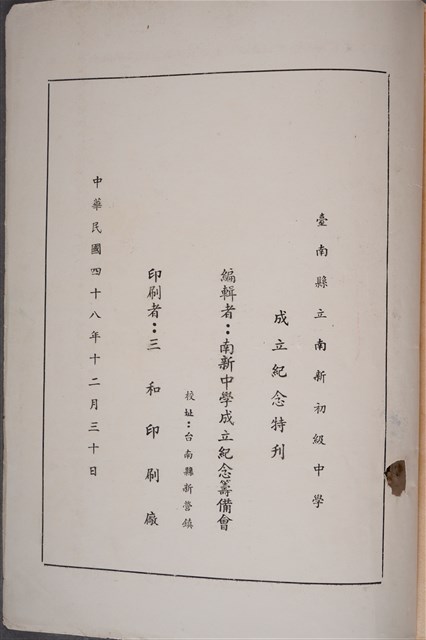 臺南縣立南新初級中學
成立紀念特刊
編輯者：南新中學成立紀念籌備會
校址：台南縣新營鎮
印刷者：三和印刷廠
中華民國四十八年十二月三十日